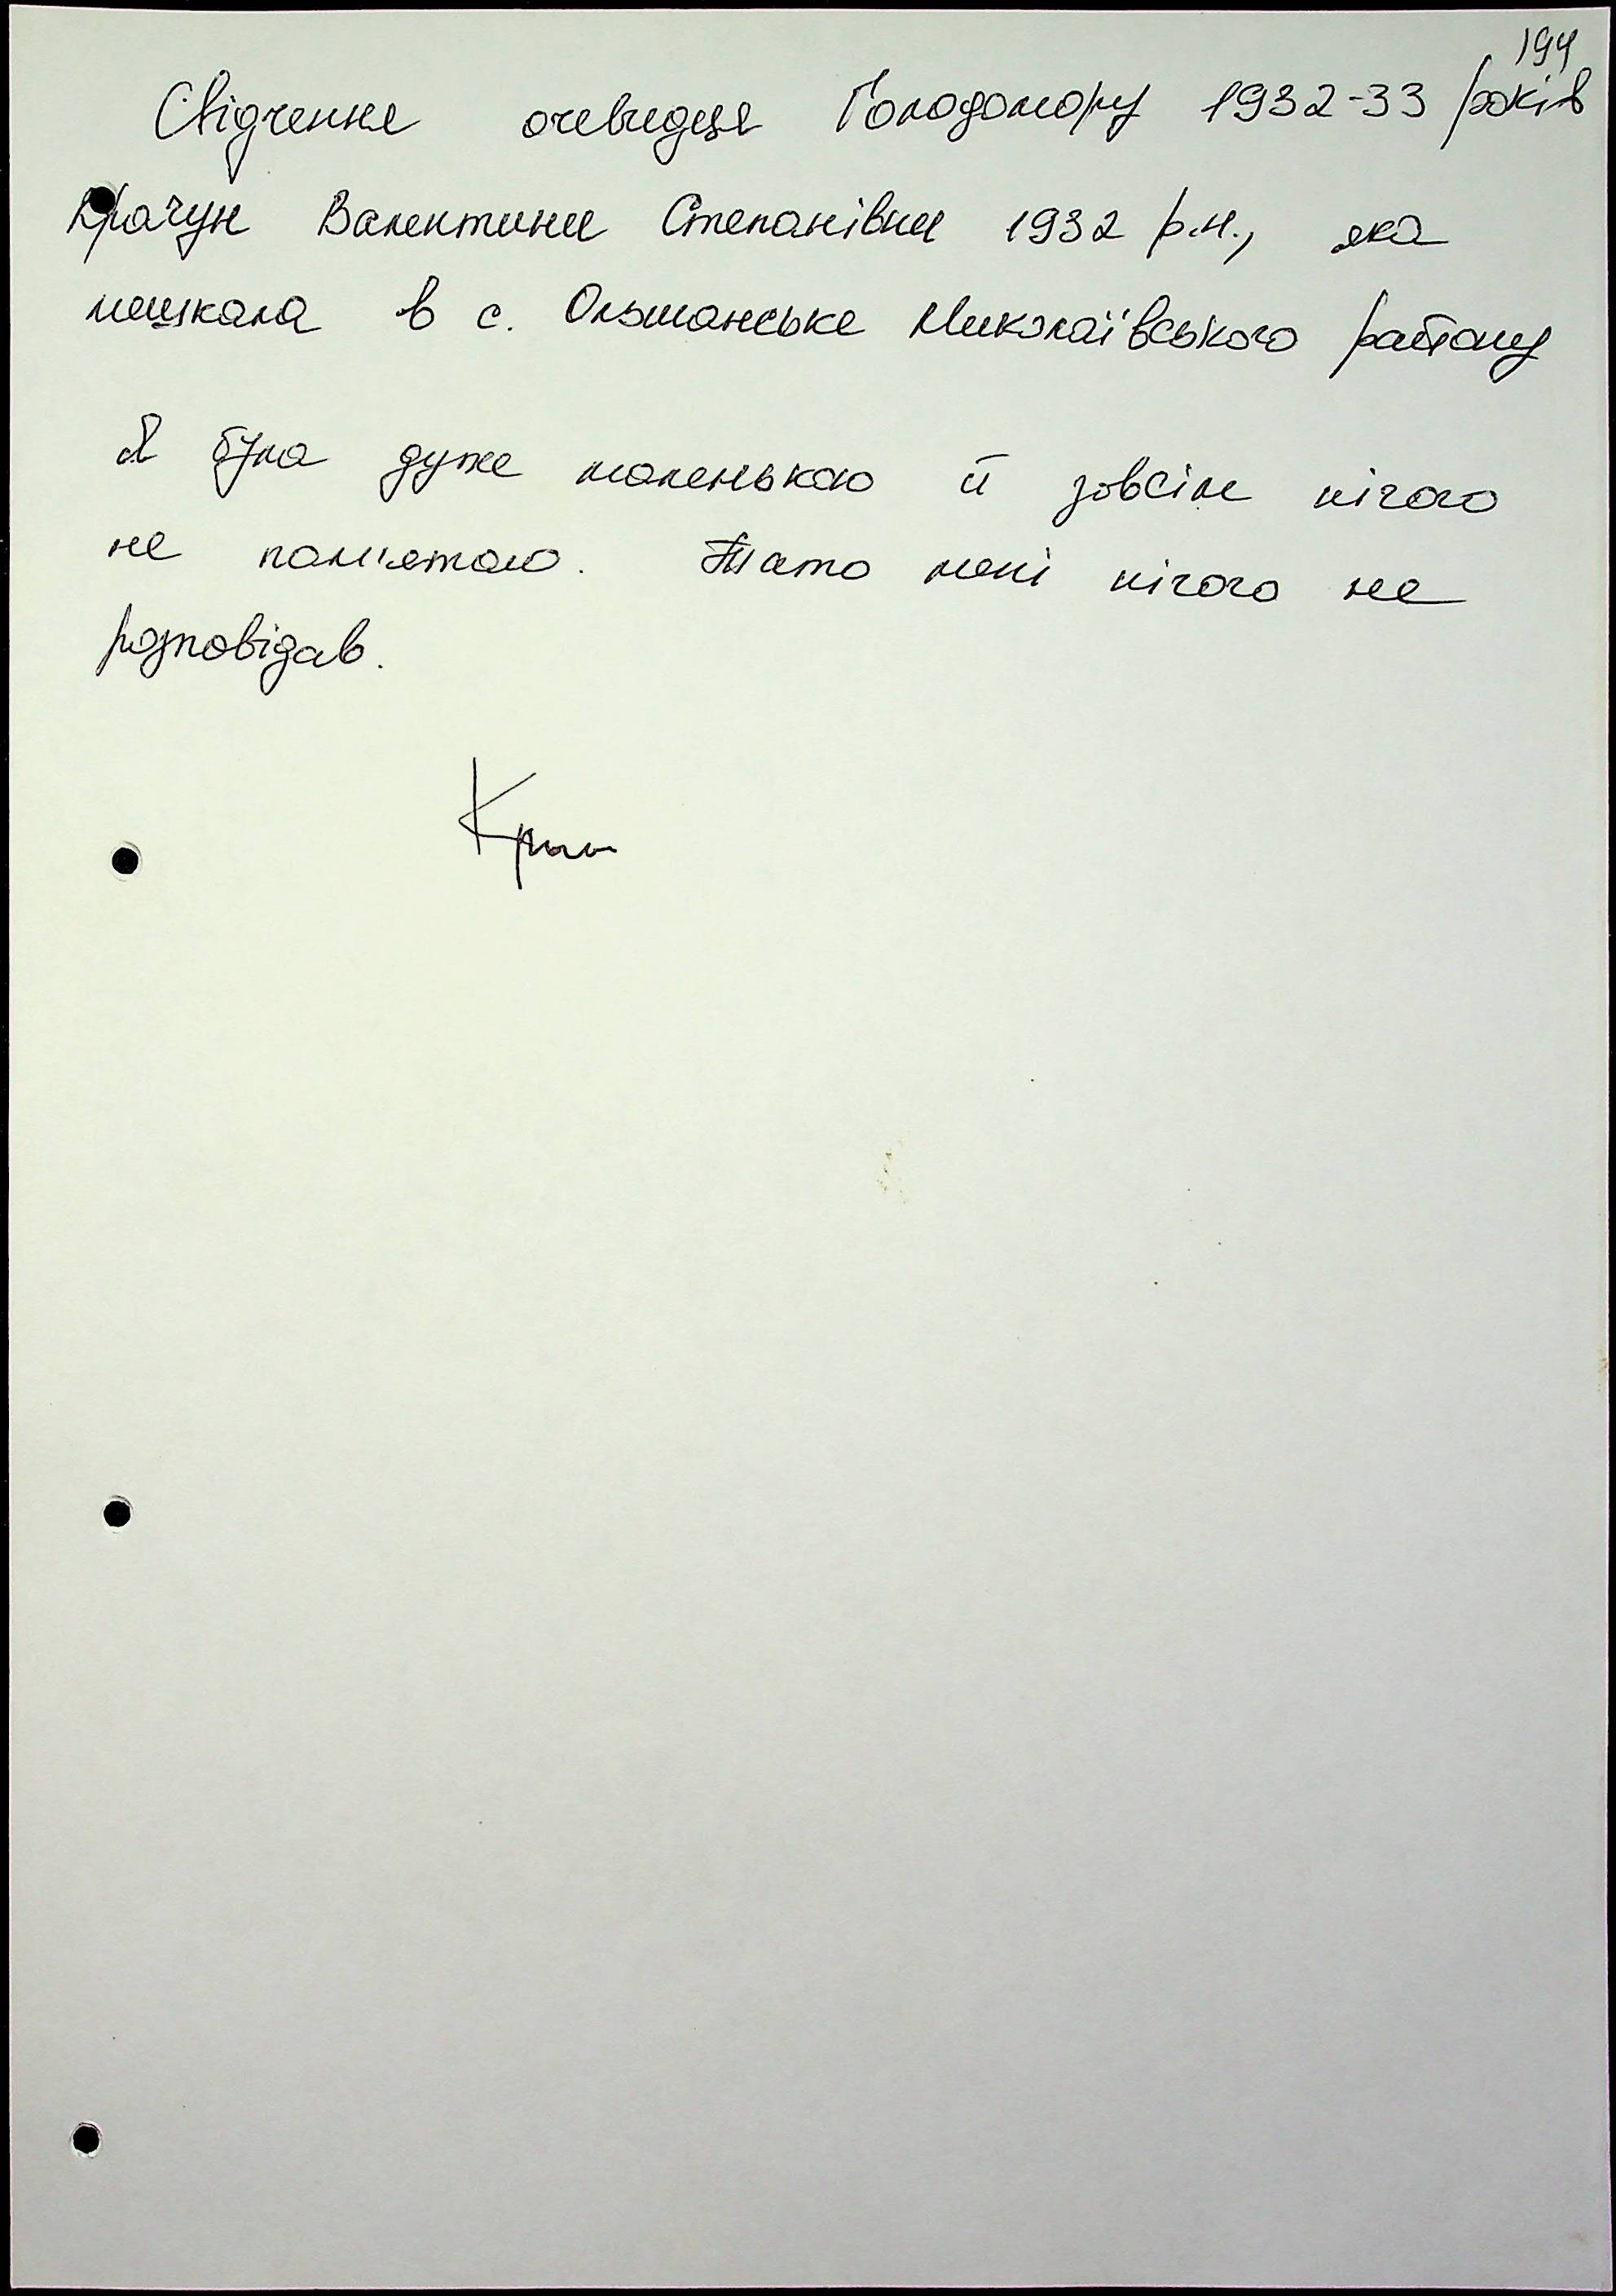 194
Свідчення очевидця Голодомору 1932-33 років
Крачун Валентини Степанівни 1932 р.н., яка
мешкала в с. Ольшанське Миколаївського району
Я була дуже маленькою й зовсім нічого
не пам'ятаю. Тато мені нічого не
розповідав.